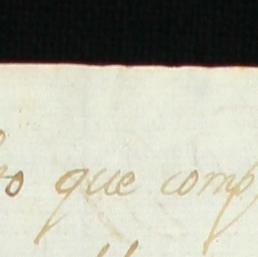 que comp